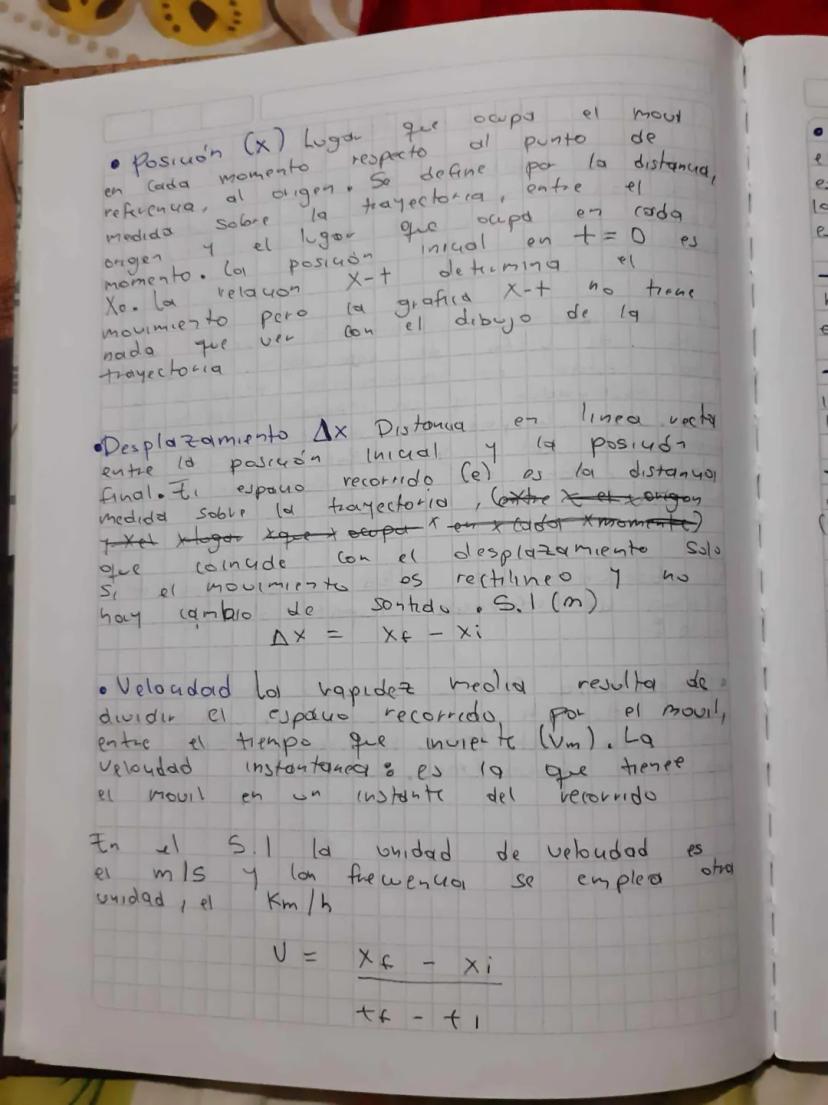 • Posición (x) Lugar que ocupa el movil
en cada momento respecto al punto de
referencia, al origen. Se define por la distancia,
medida sobre la trayectoria, entre el
origen y el lugar que ocupa en cada
momento. La posición inicial en t = 0 es
Xo. La relación x-t determina el
movimiento pero la grafica x-t no tiene
nada que ver con el dibujo de la
trayectoria
• Desplazamiento Δx Distancia en linea recta
entre la posición inicial y la posición
final. El espacio recorrido (e) es la distancia,
medida sobre la trayectoria, (entre el origen
y el lugar que ocupa en cada momento)
que coincide con el desplazamiento solo
si el movimiento es rectilineo y no
hay cambio de sentido. S.I (m)
Δx = xf - xi
• Velocidad La rapidez media resulta de
dividir el espacio recorrido, por el movil,
entre el tiempo que invierte (Vm). La
velocidad instantanea: es la que tienee
el movil en un instante del recorrido
En el S.I la unidad de velocidad es
el m/s y con frecuencia se emplea otra
unidad, el Km/h
V = xf - xi
tf - ti